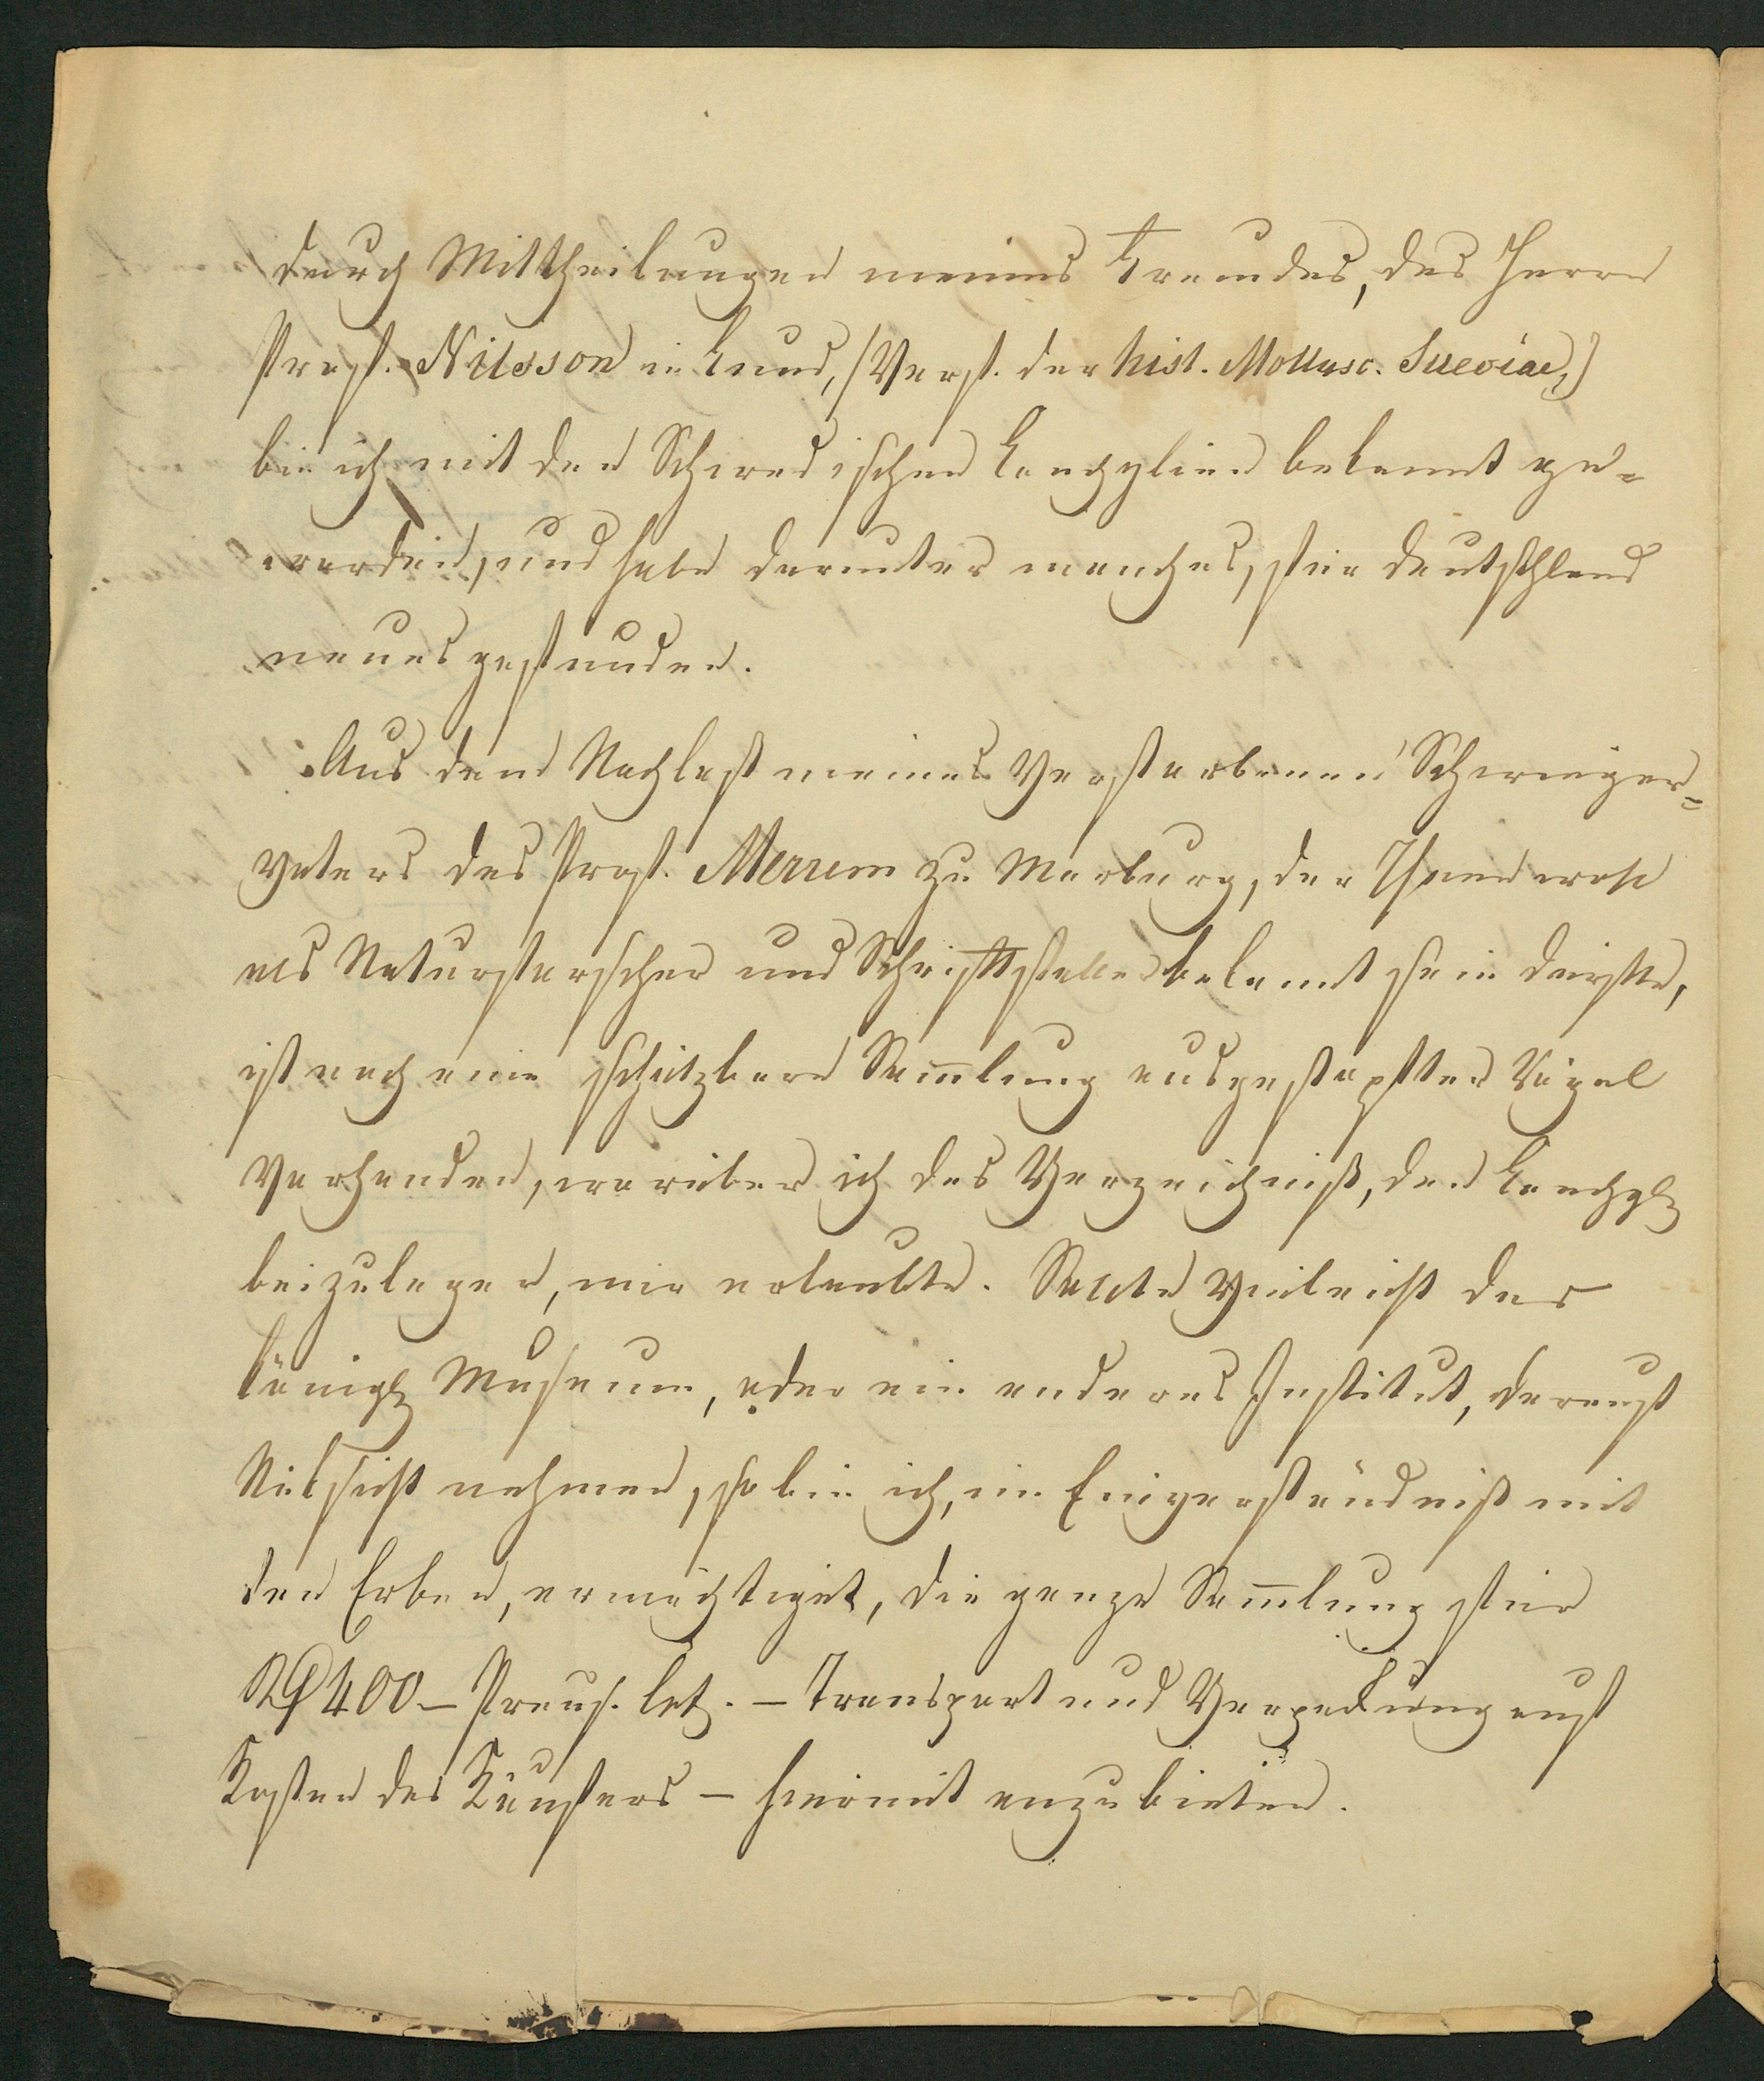 durch Mittheilungen meines Freundes, des Herrn
Prof. Nilsson in Lund, (Verf. der hist. Mollusc. Sueciae,)
bin ich mit den Schwedischen Conchylien bekannt ge-
worden, und habe darunter manches, für Deutschland
neues gefunden.
Aus dem Nachlaß meines Verstorbenen Schwieger-
vaters des Prof. Merrem zu Marburg, der Ihnen wohl
als Naturforscher und Schriftsteller bekannt sein dürfte,
ist noch eine schätzbare Sam̄lung ausgestopfter Vögel
Vorhanden, worüber ich das Verzeichniß, den Conchyl
beizulegen, mir erlaubte. Sollte Vieleicht das
königl Museum, oder ein anderes Institut, darauf
Rüksicht nehmen, so bin ich, im Einverständniß mit
den Erben, ermächtiget, die ganze Sam̄lung für
Rthl 400 – Preuß. Ct. – Transport und Verpackung auf
Kosten des Käufers – hiermit anzubieten.